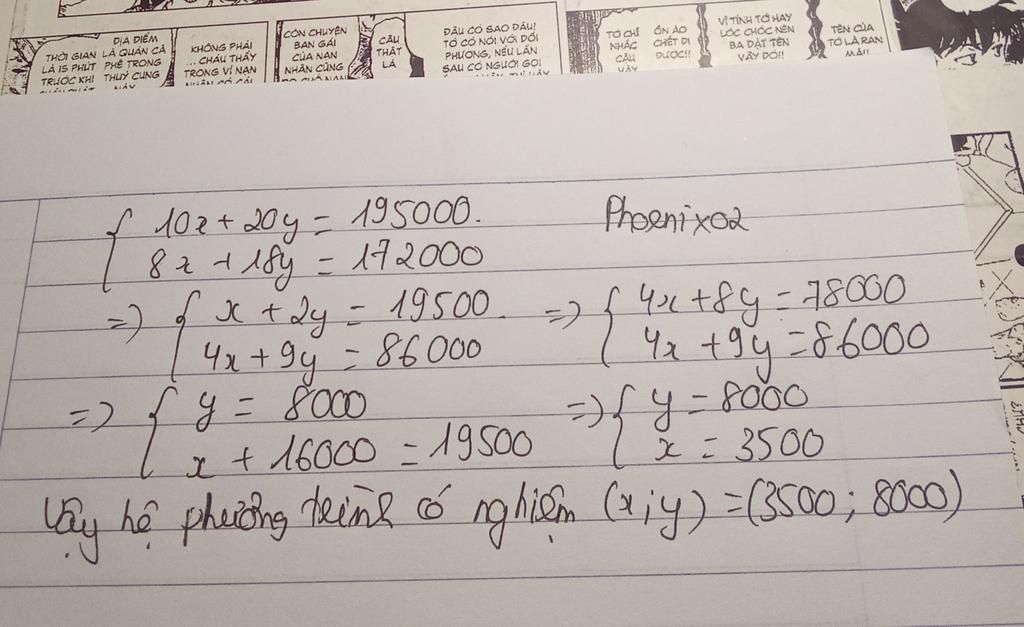 THỜI GIAN
LÀ 15 PHÚT
TRƯỚC KHI
ĐỊA ĐIỂM
LÀ QUÁN CÀ
PHÊ TRONG
THUỶ CUNG
NÀY
KHÔNG PHẢI
... CHÁU THẤY
TRONG VÍ NẠN
CÒN CHUYỆN
BẠN GÁI
CỦA NẠN
NHÂN CŨNG
CÂU
THẬT
LÀ
ĐÂU CÓ SAO ĐÂU!
TỚ CÓ NÓI VỚI ĐỐI
PHƯƠNG, NẾU LẦN
SAU CÓ NGƯỜI GỌI
TỚ CHỈ
NHẮC
CẬU
VẬY
ỒN ÀO
CHẾT ĐI
ĐƯỢC!!
VÌ TÍNH TỚ HAY
LÓC CHÓC NÊN
BA ĐẶT TÊN
VẬY ĐÓ!!
TÊN CỦA
TỚ LÀ RAN
MÀ!!
10x + 20y = 195000. Phoenix02
8x + 18y = 172000
=> x + 2y = 19500. => 4x + 8y = 78000
4x + 9y = 86000 4x + 9y = 86000
=> y = 8000 => y = 8000
x + 16000 = 19500 x = 3500
Vậy hệ phương trình có nghiệm (x;y) = (3500; 8000)